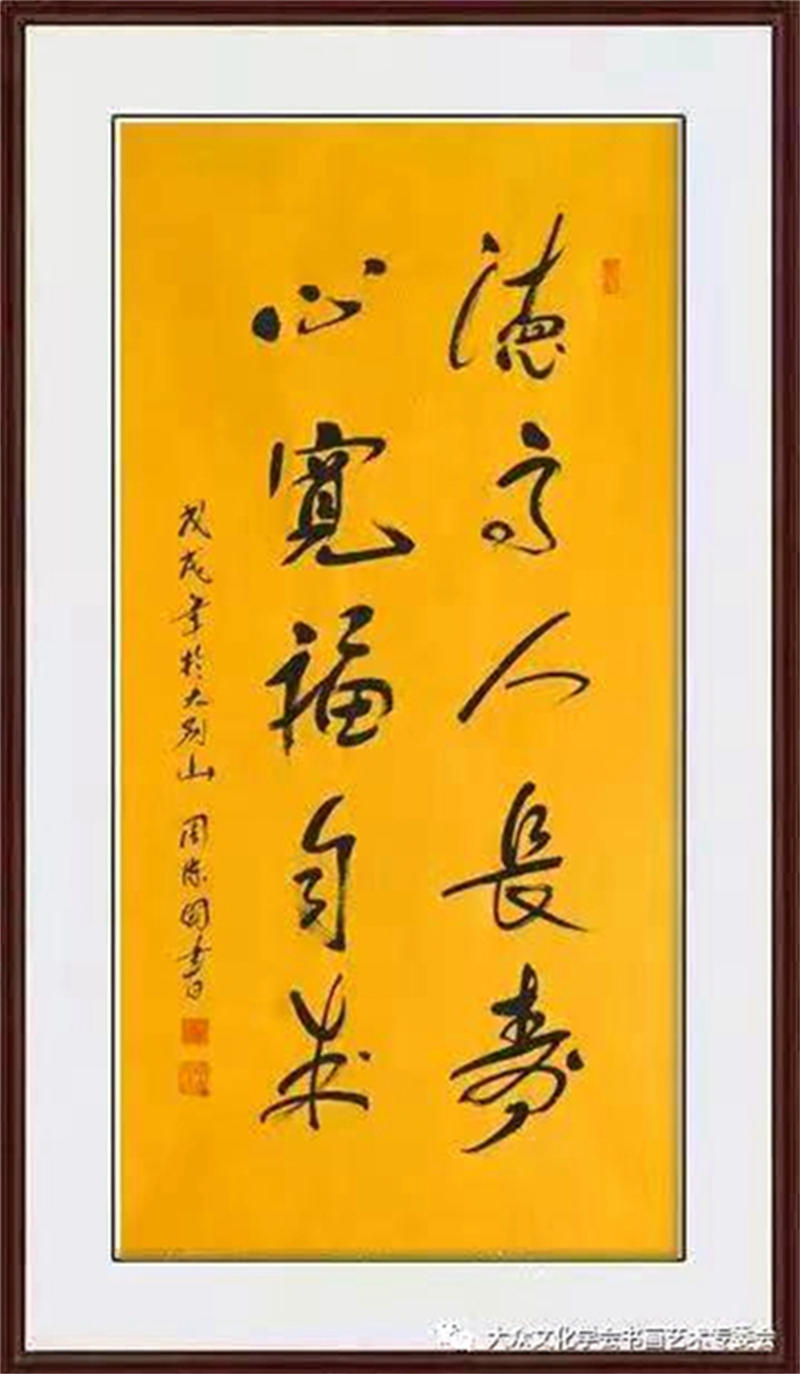 德高人長壽
心寬福自来
戊戌年於大别山 周宗國書
大众文化学会书画艺术专委会